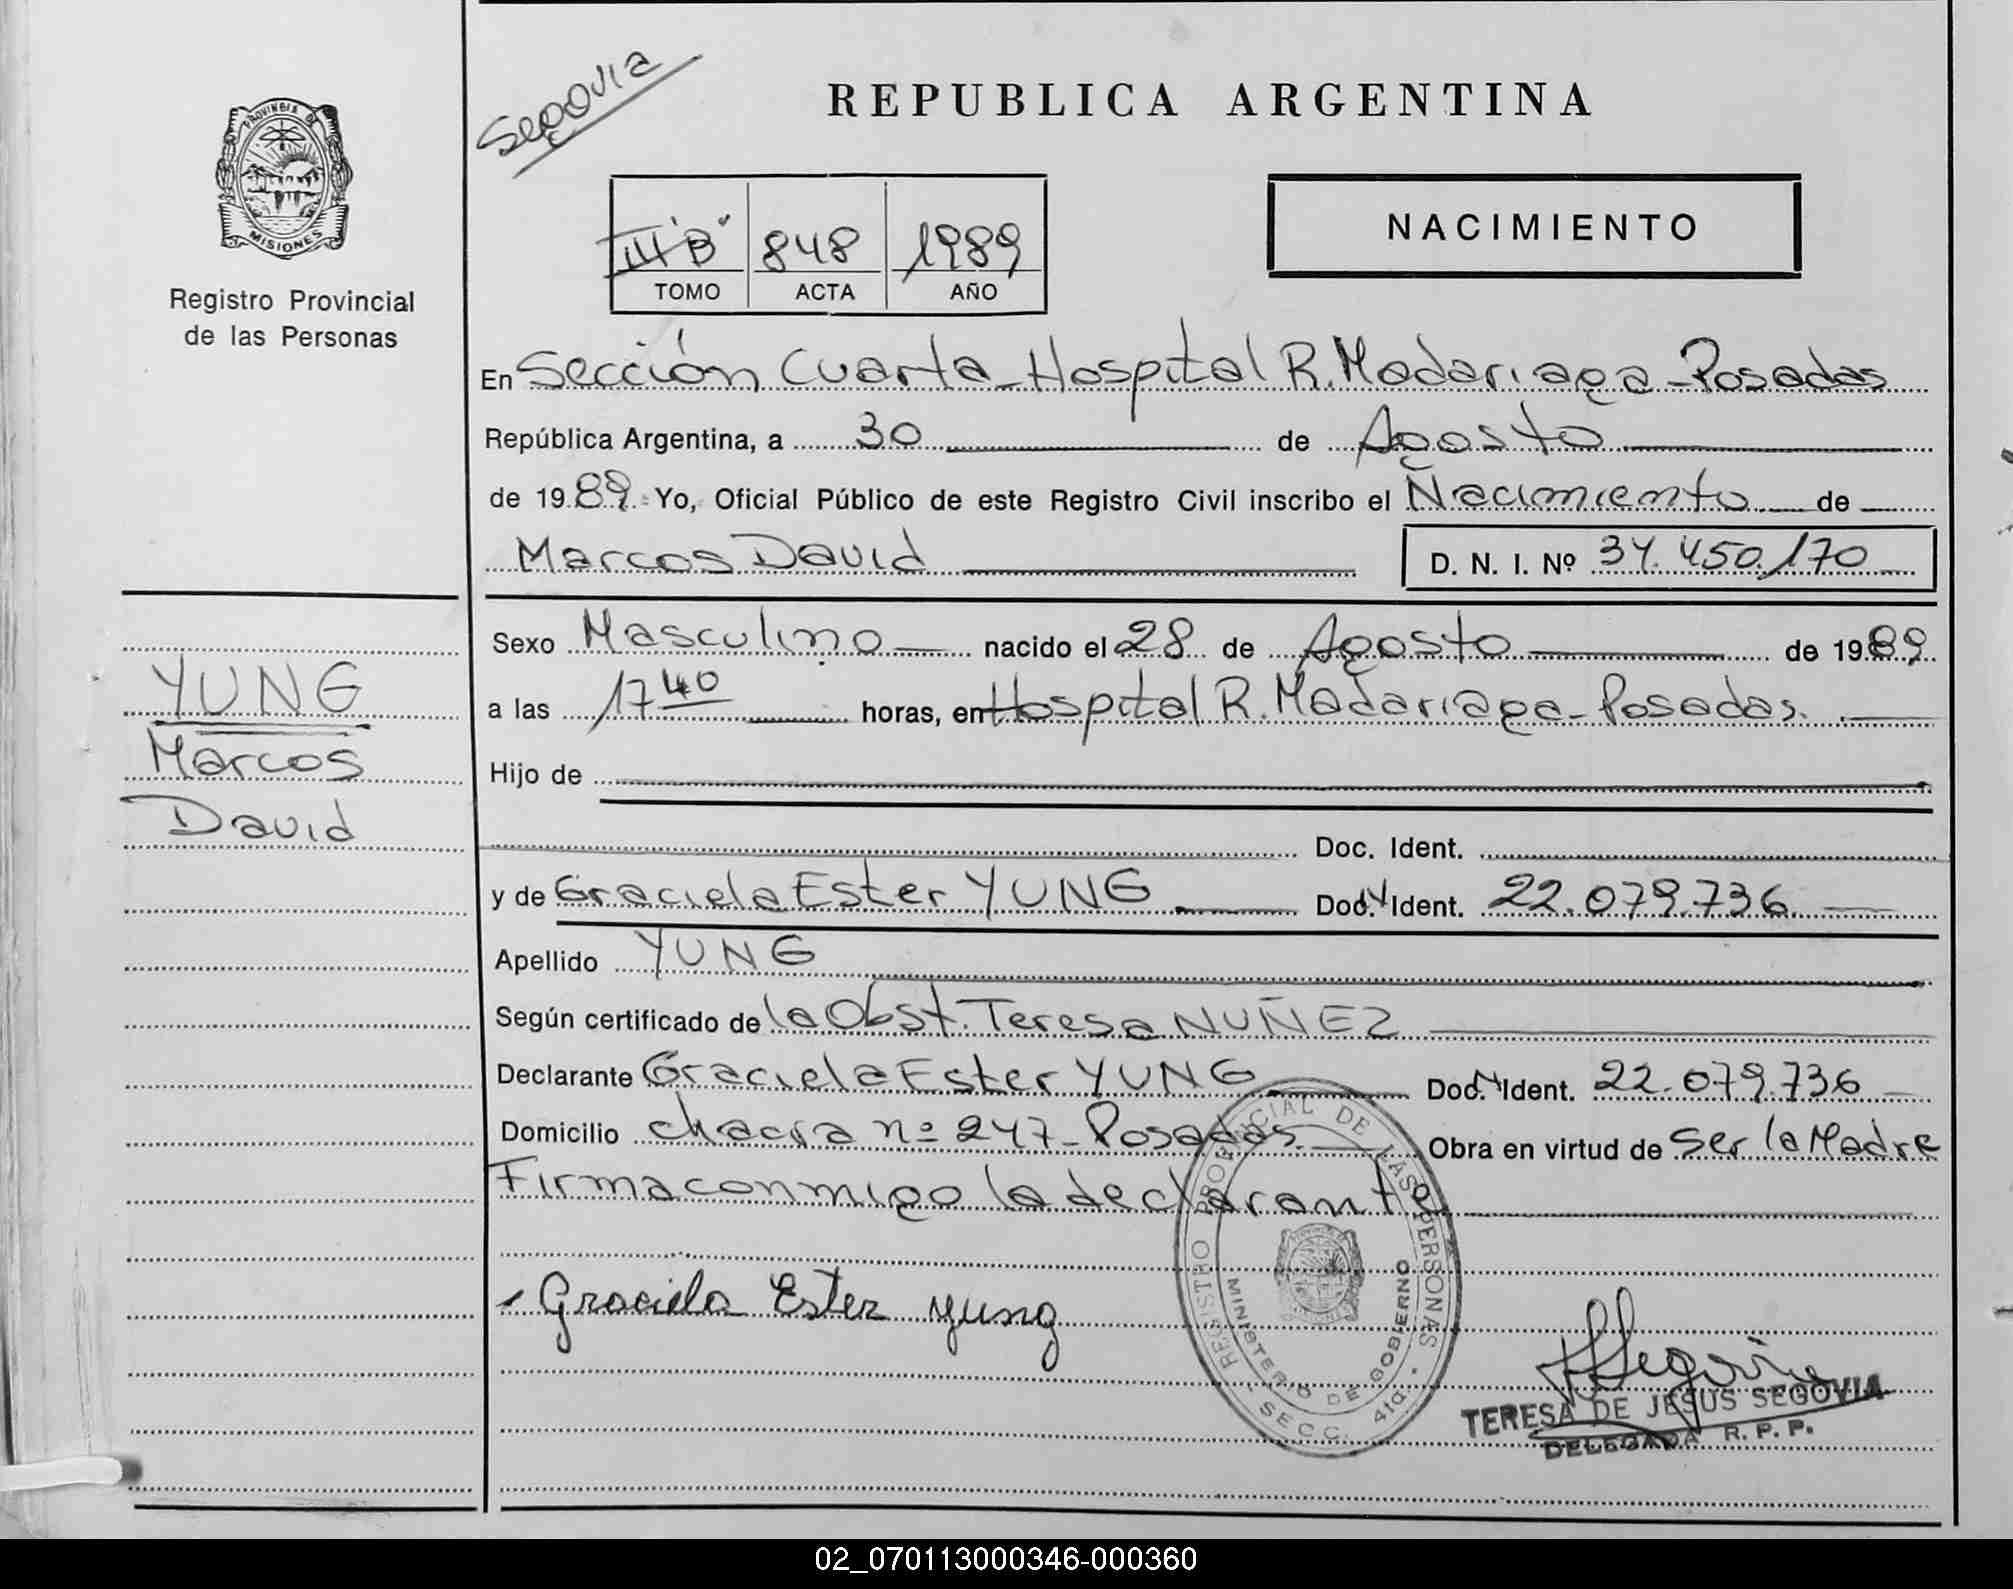 Segovia
REPUBLICA ARGENTINA
PROVINCIA DE
MISIONES
Registro Provincial
de las Personas
III "B" 848 1989
TOMO ACTA AÑO
NACIMIENTO
En Sección Cuarta - Hospital R. Madariaga - Posadas
República Argentina, a 30 de Agosto
de 1989. Yo, Oficial Público de este Registro Civil inscribo el Nacimiento de
Marcos David D. N. I. Nº 34.450.170
Sexo Masculino nacido el 28 de Agosto de 1989
a las 17 40 horas, en Hospital R. Madariaga - Posadas.
Hijo de
Doc. Ident.
y de Graciela Ester YUNG Doc. Ident. 22.079.736
Apellido YUNG
Según certificado de la Obst. Teresa NUÑEZ
Declarante Graciela Ester YUNG Doc. Ident. 22.079.736
Domicilio chacra nº 247 - Posadas Obra en virtud de ser la Madre
Firma conmigo la declarante
Graciela Ester Yung
YUNG
Marcos
David
REGISTRO PROVINCIAL DE LAS PERSONAS
MINISTERIO DE GOBIERNO
SECC. 4ta.
Segovia
TERESA DE JESUS SEGOVIA
DELEGADA R. P. P.
02_070113000346-000360